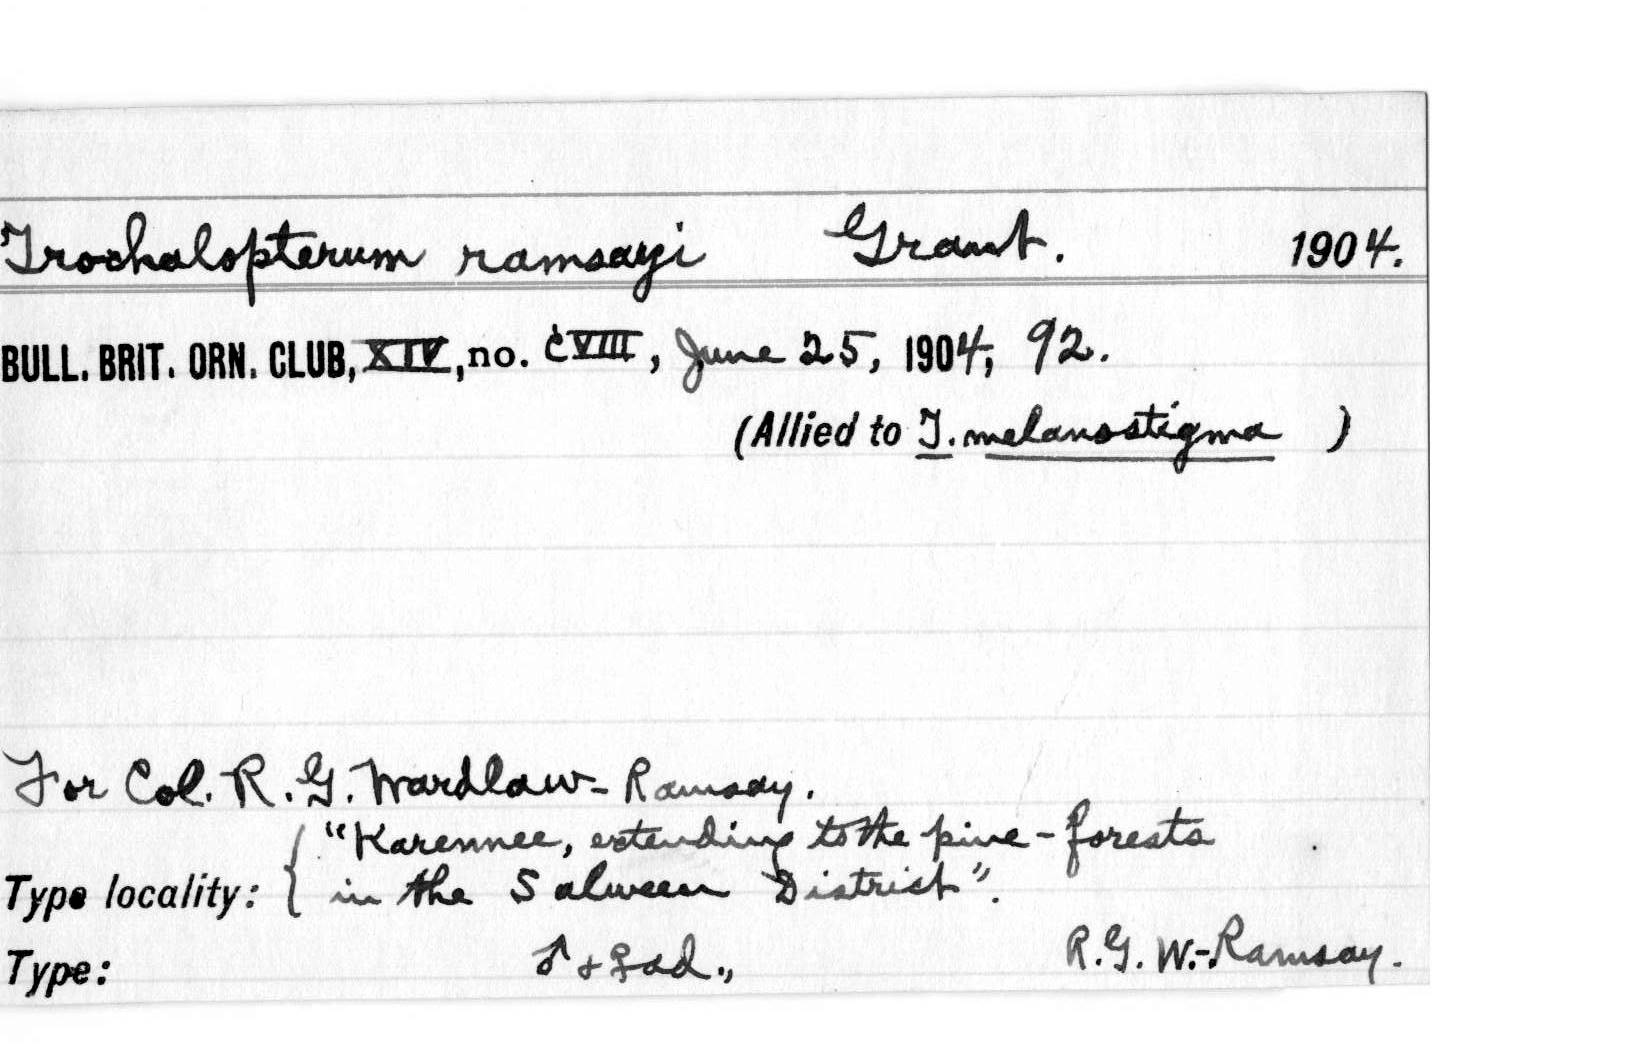 Trochalopterum ramsayi Grant. 1904.
BULL. BRIT. ORN. CLUB, XIV, no. CVIII, June 25, 1904, 92.
(Allied to T. melanostigma )
For Col. R. G. Wardlaw-Ramsay.
"Karennee, extending to the pine-forests
Type locality: { in the Salween District".
Type: ♂ + ♀ ad., R. G. W.-Ramsay.